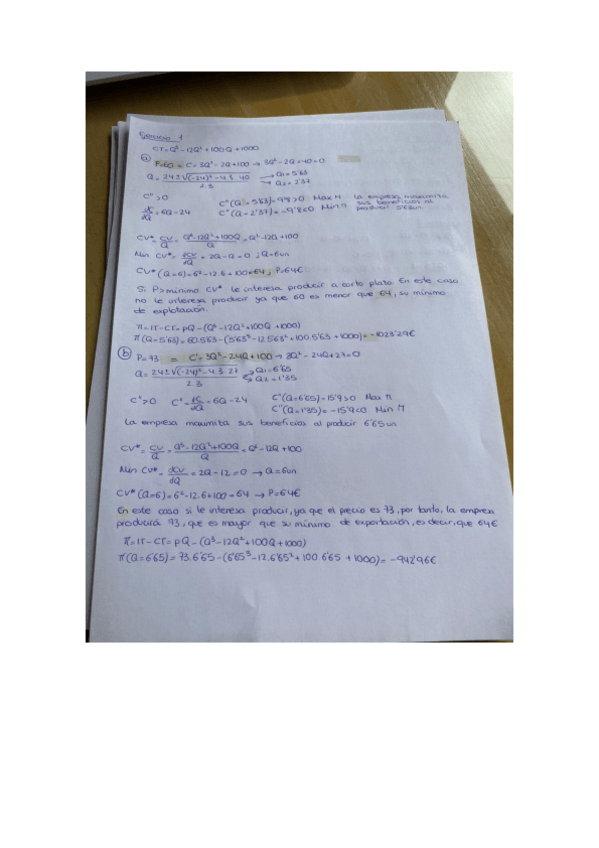 Ejercicio 1
CT=Q³-12Q²+100Q+1000
(a) P=60 = C'=3Q²-2Q+100 → 3Q²-2Q+40=0
Q = 24±√(-24)²-4.3.40 / 2.3 → Q1=5'63
→ Q2=2'37
C''>0
dC'/dQ = 6Q-24
C''(Q=5'63)=9'8>0 Max π La empresa maximita
C''(Q=2'37)=-9'8<0 Min π sus beneficios al
producir 5'63un
CV*= CV/Q = Q³-12Q²+100Q / Q = Q²-12Q+100
Min CV*= dCV/dQ = 2Q-Q=0 ; Q=6un
CV*(Q=6)=6²-12.6+100=64; P=64€
Si P>mínimo CV* le interesa producir a corto plazo. En este caso
no le interesa producir ya que 60 es menor que 64, su mínimo
de explotación.
π=IT-CT=pQ-(Q³-12Q²+100Q+1000)
π(Q=5'63)=60.5'63-(5'63³-12.5'63²+100.5'63+1000)=-1023'29€
(b) P=73 = C'=3Q²-24Q+100 → 3Q²-24Q+27=0
Q = 24±√(-24)²-4.3.27 / 2.3 → Q1=6'65
→ Q2=1'35
C''>0 C''= dC'/dQ = 6Q-24 C''(Q=6'65)=15'9>0 Max π
C''(Q=1'35)=-15'9<0 Min π
La empresa maximita sus beneficios al producir 6'65un
CV*= CV/Q = Q³-12Q²+100Q / Q = Q²-12Q+100
Min CV*= dCV/dQ = 2Q-12=0 → Q=6un
CV*(Q=6)=6²-12.6+100=64 → P=64€
En este caso si le interesa producir, ya que el precio es 73, por tanto, la empresa
producirá 73, que es mayor que su mínimo de exportación, es decir, que 64€
π=IT-CT=pQ-(Q³-12Q²+100Q+1000)
π(Q=6'65)=73.6'65-(6'65³-12.6'65²+100.6'65+1000)=-942'96€